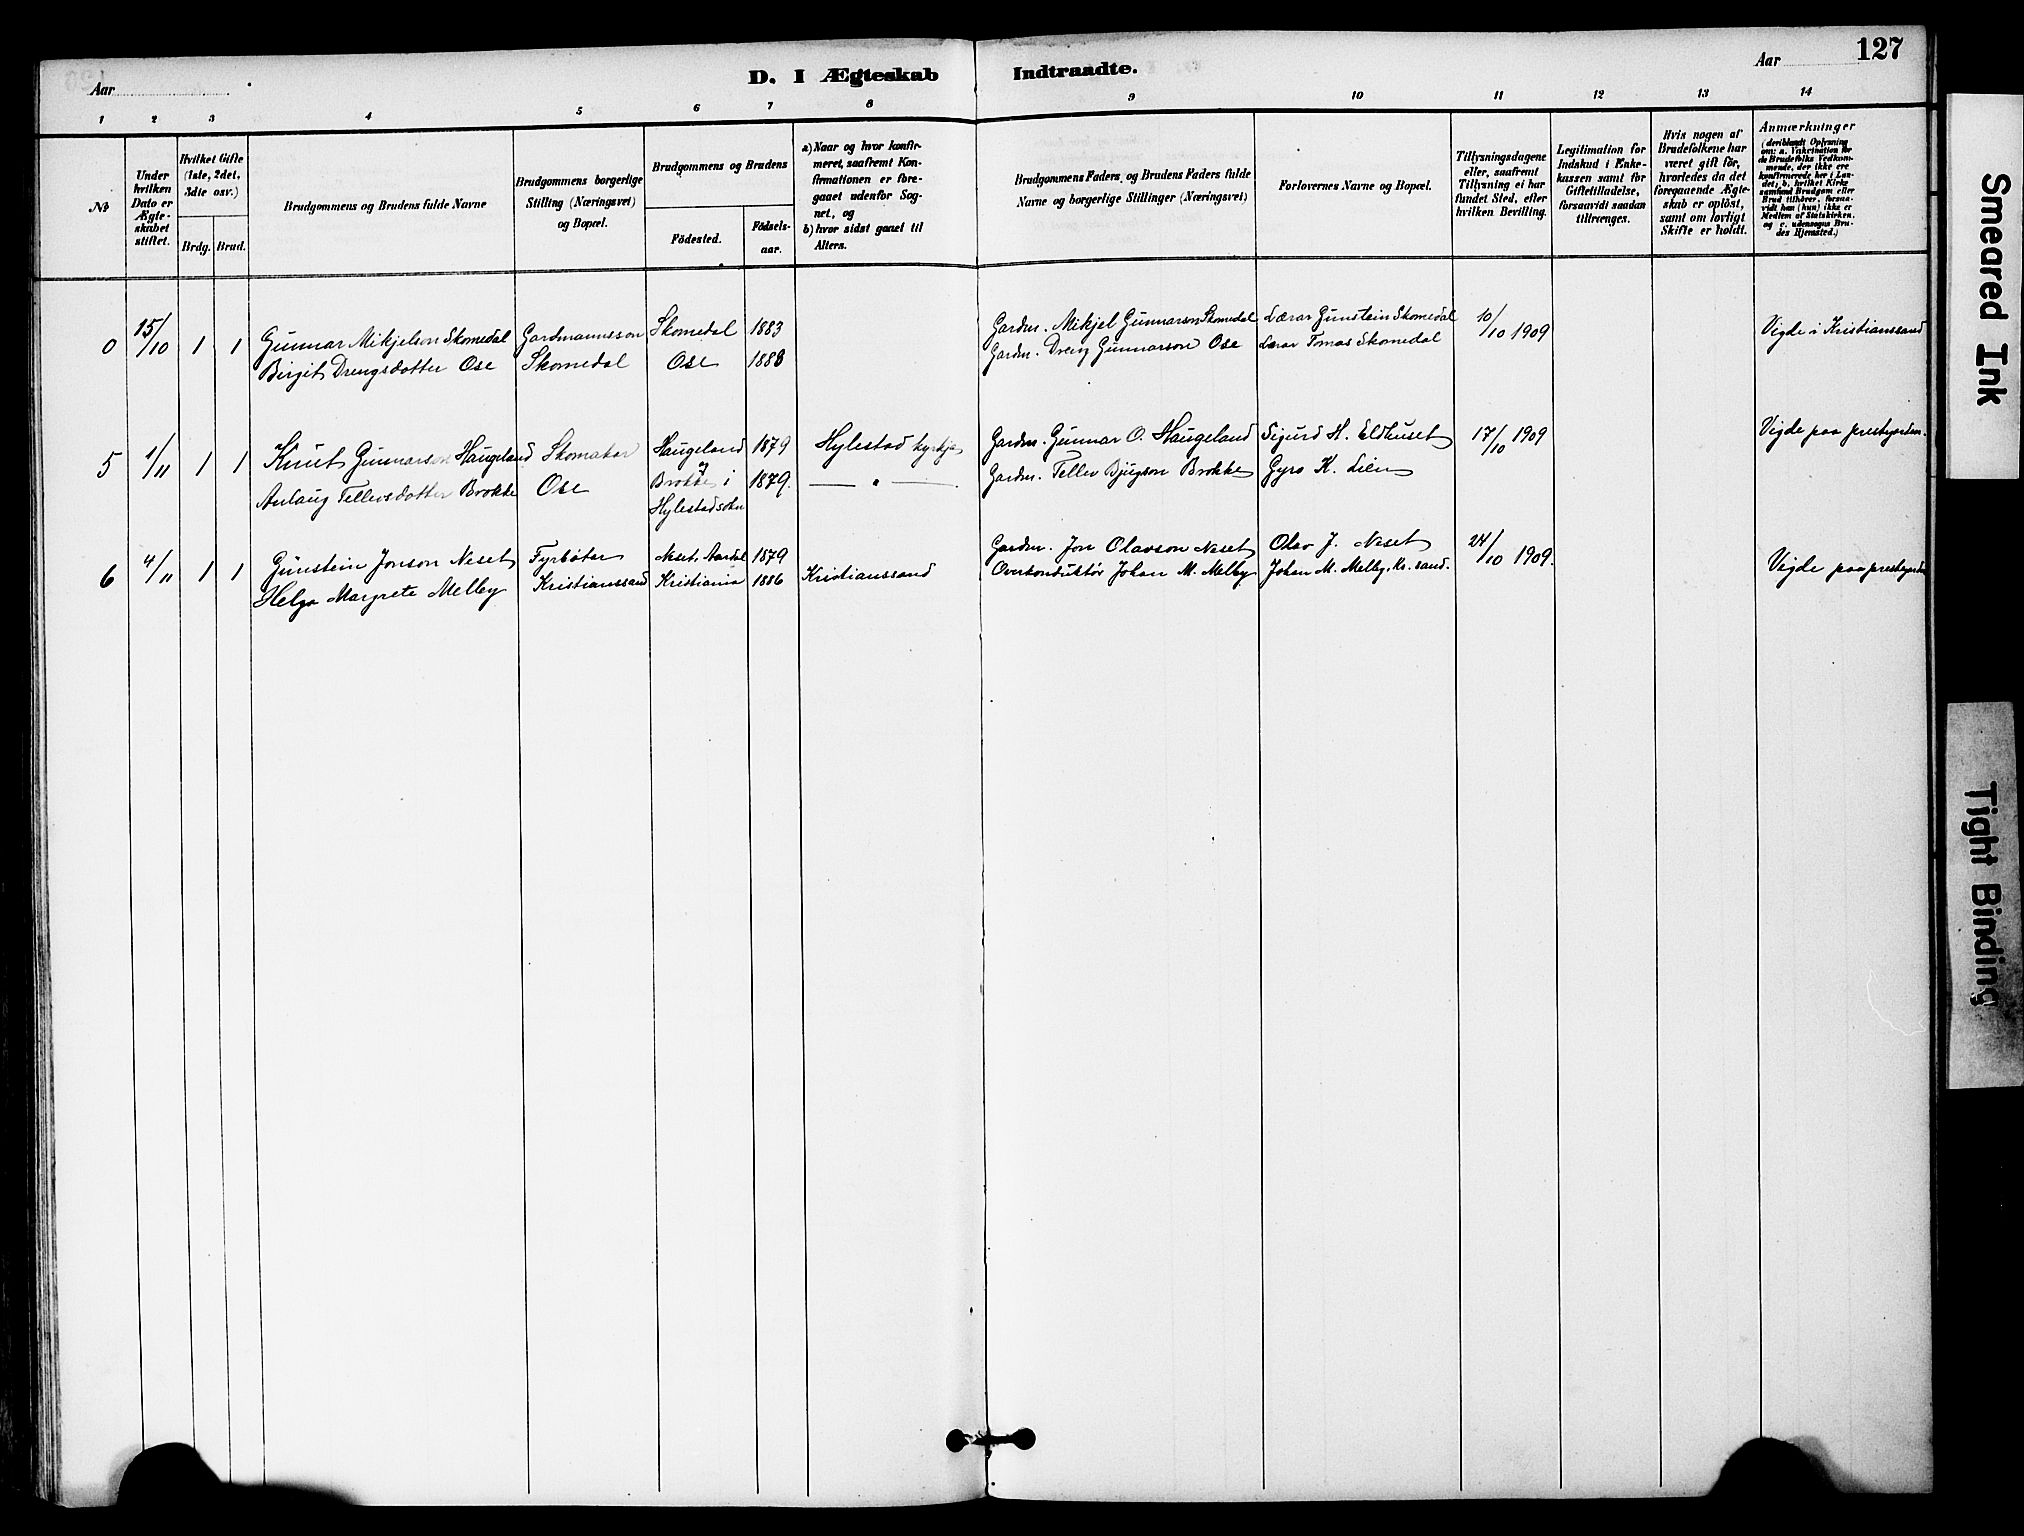 Aar
D. I Ægteskab Indtraadte.
Aar 127
1 2 3 4 5 6 7 8 9 10 11 12 13 14
No
Under hvilken Dato er Ægteskabet stiftet.
Hvilket Gifte (1ste, 2det, 3dte osv.)
Brdg. Brud.
Brudgommens og Brudens fulde Navne
Brudgommens borgerlige Stilling (Næringsvei) og Bopæl.
Brudgommens og Brudens
Födested. Födselsaar.
a) Naar og hvor konfirmeret, saafremt Konfirmationen er foregaaet udenfor Sognet, og
b) hvor sidst gaaet til Alters.
Brudgommens Faders og Brudens Faders fulde Navne og borgerlige Stillinger (Næringsvei)
Forlovernes Navne og Bopæl.
Tillysningsdagene eller, saafremt Tillysning ei har fundet Sted, efter hvilken Bevilling.
Legitimation for Indskud i Enkekassen samt for Giftetilladelse, forsaavidt saadan tiltrænges.
Hvis nogen af Brudefolkene har været gift før, hvorledes da det foregaaende Ægteskab er oplöst, samt om lovligt Skifte er holdt.
Anmærkninger (deriblandt Oplysning om: a. Vakcination for de Brudefolks Vedkommende, der ikke ere konfirmerede her i Landet; b. hvilket Kirkesamfund Brudgom eller Brud tilhører, forsaavidt han (hun) ikke er Medlem af Statskirken, og c. udensogns Brudes Hjemsted.)
0 15/10 1 1 Gunnar Mikjelson Skomedal Gardmannsson Skomedal 1883 Gardm. Mikjel Gunnarson Skomedal Lærar Gunstein Skomedal 10/10 1909 Vigde i Kristianssand
Birgit Drengsdotter Ose Skomedal Ose 1883 Gardm. Dreng Gunnarson Ose Lærar Tomas Skomedal
5 1/11 1 1 Knut Gunnarson Haugeland Skomakar Haugeland 1879 Hylestad kyrkje Gardm. Gunnar O. Haugeland Sigurd H. Eldhuset 17/10 1909 Vigde paa prestgarden.
Anlaug Tellevsdotter Brokke Ose Brokke i 1879. — " — Gardm. Tellev Bjugson Brokke Gyro K. Lien
Hylestad sokn
6 4/11 1 1 Gunstein Jonson Neset Fyrbøtar Neset, Aardal 1879 Gardm. Jon Olavson Neset Olav J. Neset 24/10 1909. Vigde paa prestgarden
Helga Margrete Melby Kristianssand Kristiania 1886 Kristianssand Overkonduktør Johan M. Melby Johan M. Melby, Kr.sand.
Smeared Ink
Tight Binding